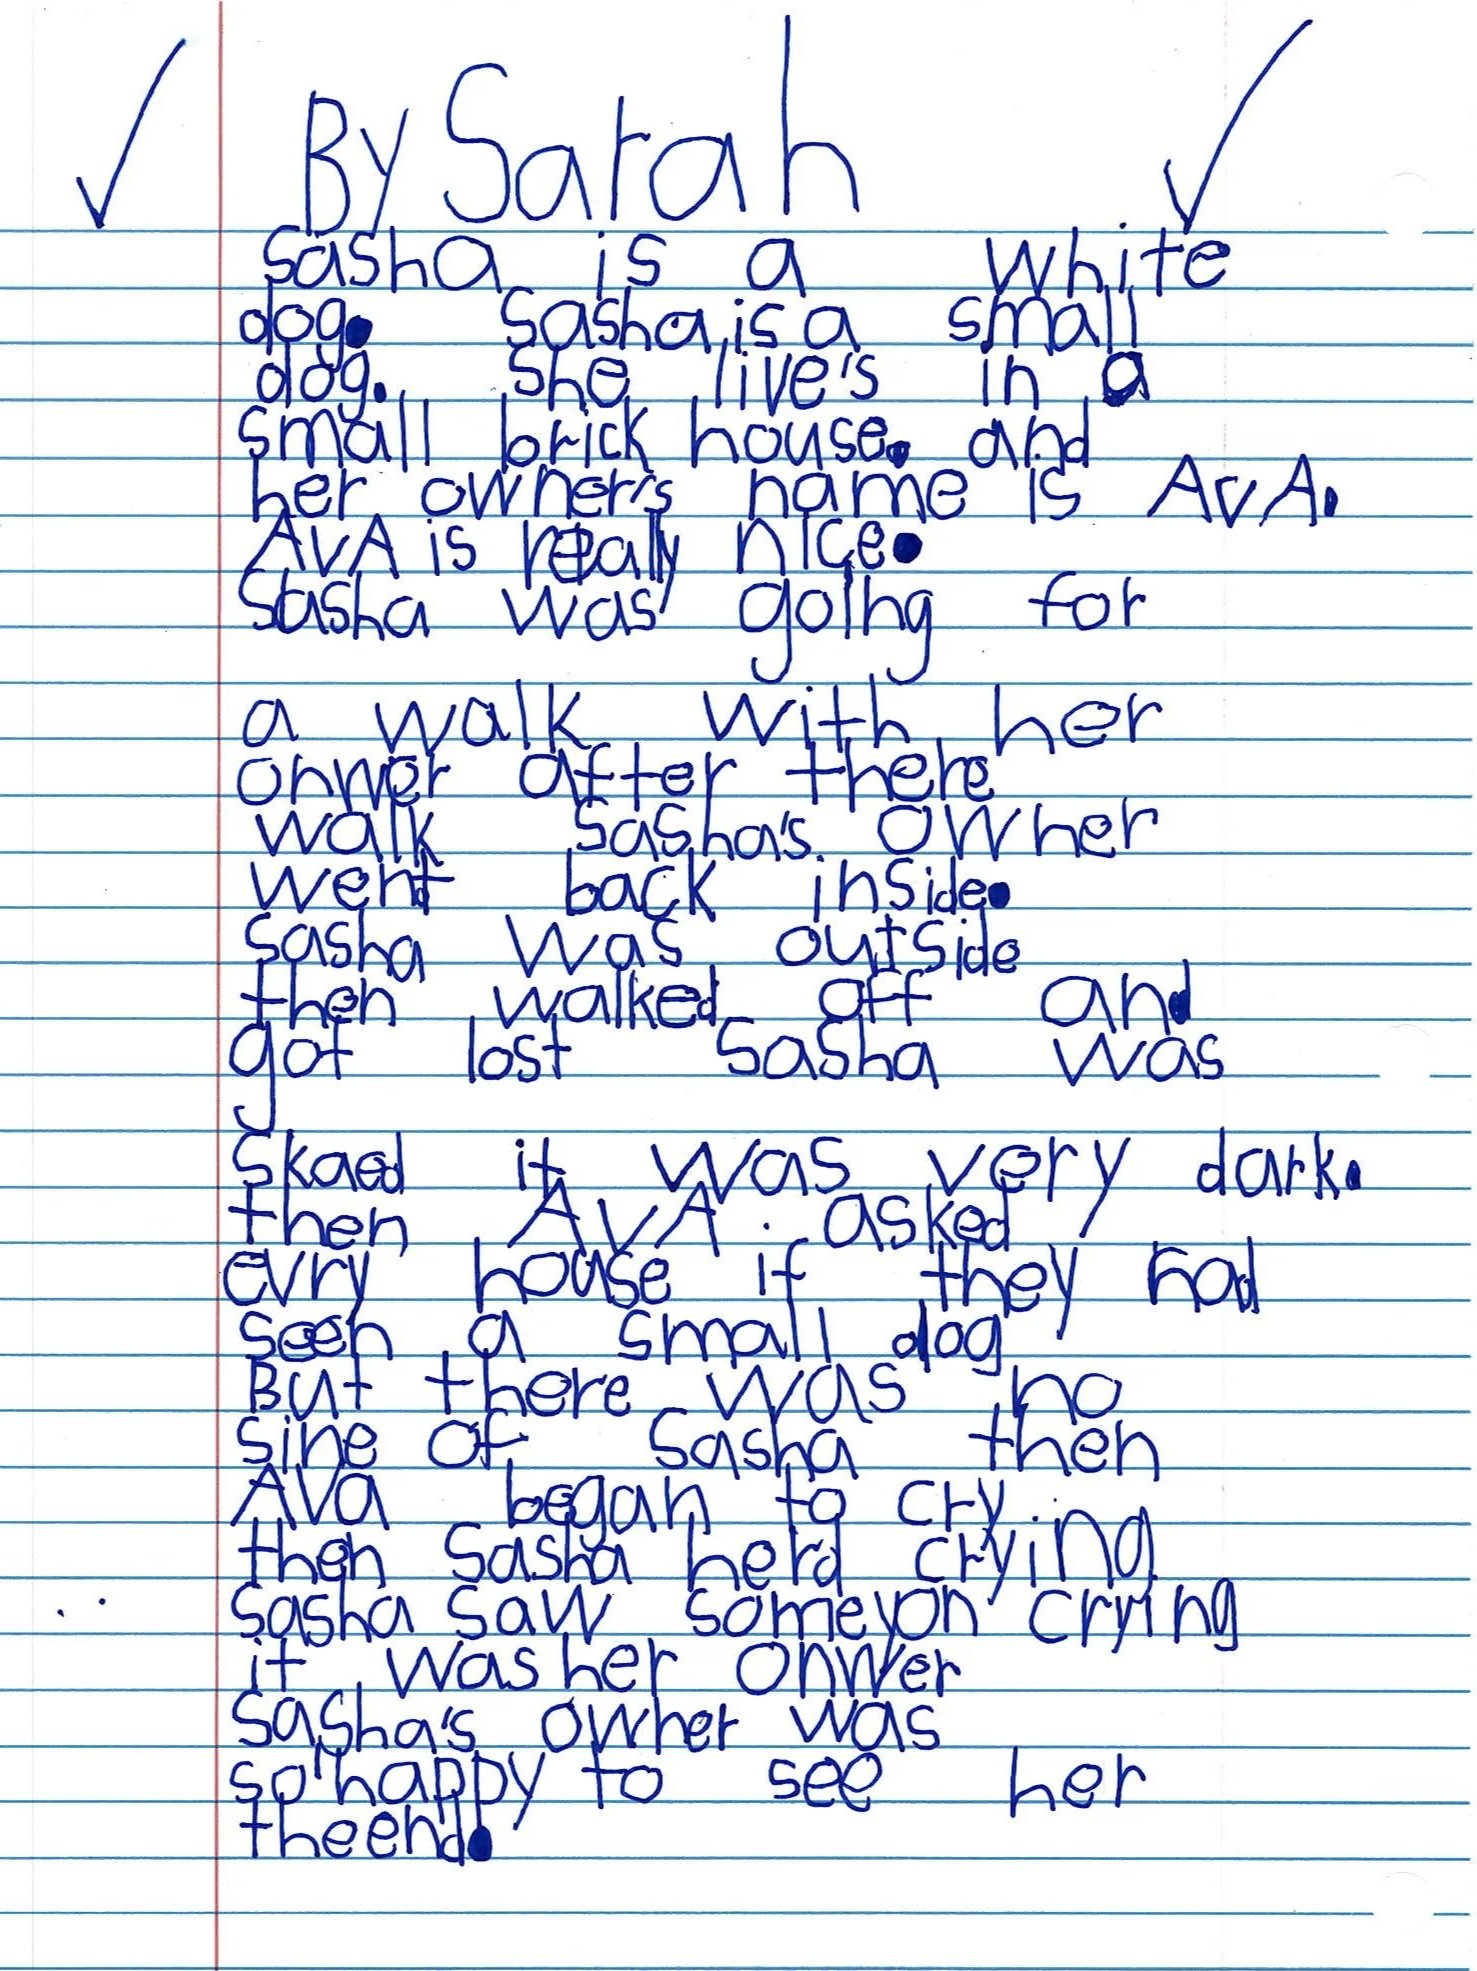 By Sarah
Sasha is a white
dog. Sasha is a small
dog. She live's in a
small brick house. and
her owner's name is AvA.
AvA is really nice.
Sasha was going for
a walk with her
onwer after there
walk Sasha's owner
went back inside.
Sasha was outside
then walked off and
got lost Sasha was
Skaed it was very dark.
then AvA asked
evry house if they had
seen a small dog
But there was no
sine of Sasha then
Ava began to cry
then Sasha herd crying
Sasha saw someyon crying
it was her onwer
Sasha's owner was
so happy to see her
the end.